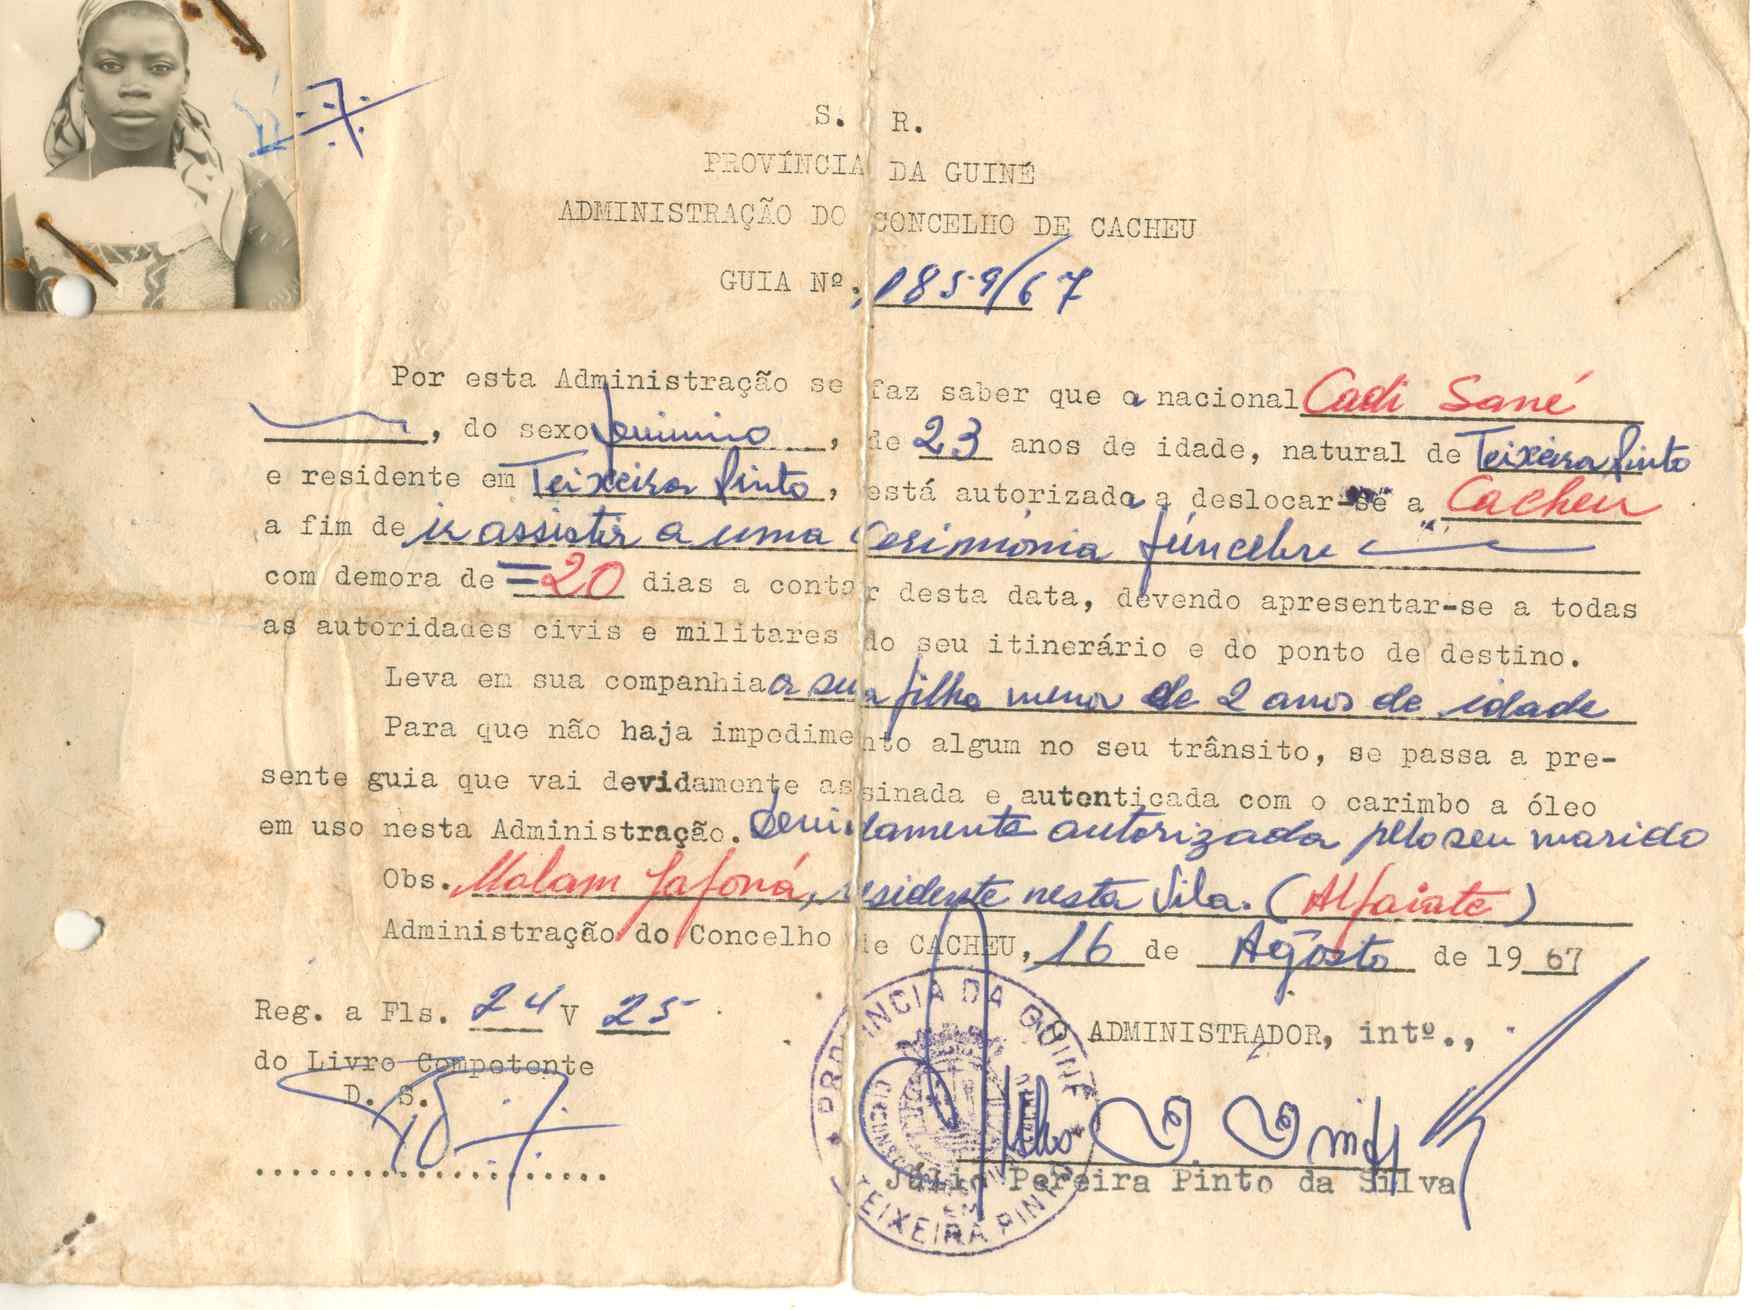 S. R.
PROVÍNCIA DA GUINÉ
ADMINISTRAÇÃO DO CONCELHO DE CACHEU
GUIA Nº. 1859/67
Por esta Administração se faz saber que a nacional Cadi Sané
, do sexo feminino, de 23 anos de idade, natural de Teixeira Pinto
e residente em Teixeira Pinto, está autorizada a deslocar-se a Cacheu
a fim de ir assistir a uma cerimónia fúncebre
com demora de =20 dias a contar desta data, devendo apresentar-se a todas
as autoridades civis e militares do seu itinerário e do ponto de destino.
Leva em sua companhia a sua filha menor de 2 anos de idade
Para que não haja impedimento algum no seu trânsito, se passa a pre-
sente guia que vai devidamente assinada e autenticada com o carimbo a óleo
em uso nesta Administração. Devidamente autorizada pelo seu marido
Obs. Malam Jafoná, residente nesta Vila. (Alfaiate)
Administração do Concelho de CACHEU, 16 de Agôsto de 1967
Reg. a Fls. 24 V 25
do Livro Competente
D. S.
O ADMINISTRADOR, intº.,
Júlio Pereira Pinto da Silva
PROVÍNCIA DA GUINÉ
TEIXEIRA PINTO